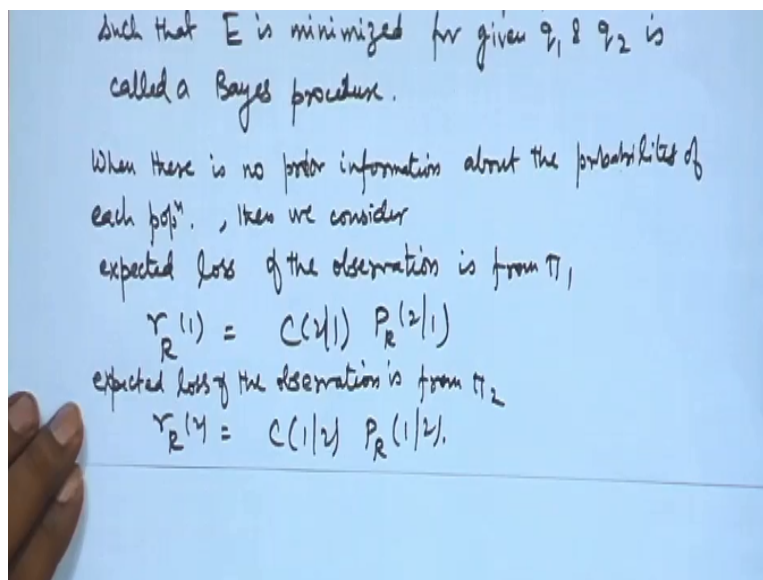 such that E is minimized for given q₁ & q₂ is
called a Bayes procedure.
When there is no prior information about the probabilites of
each popⁿ. , then we consider
expected loss of the observation is from π₁
r_R(1) = C(2|1) P_R(2/1)
expected loss of the observation is from π₂
r_R(2) = C(1/2) P_R(1/2).